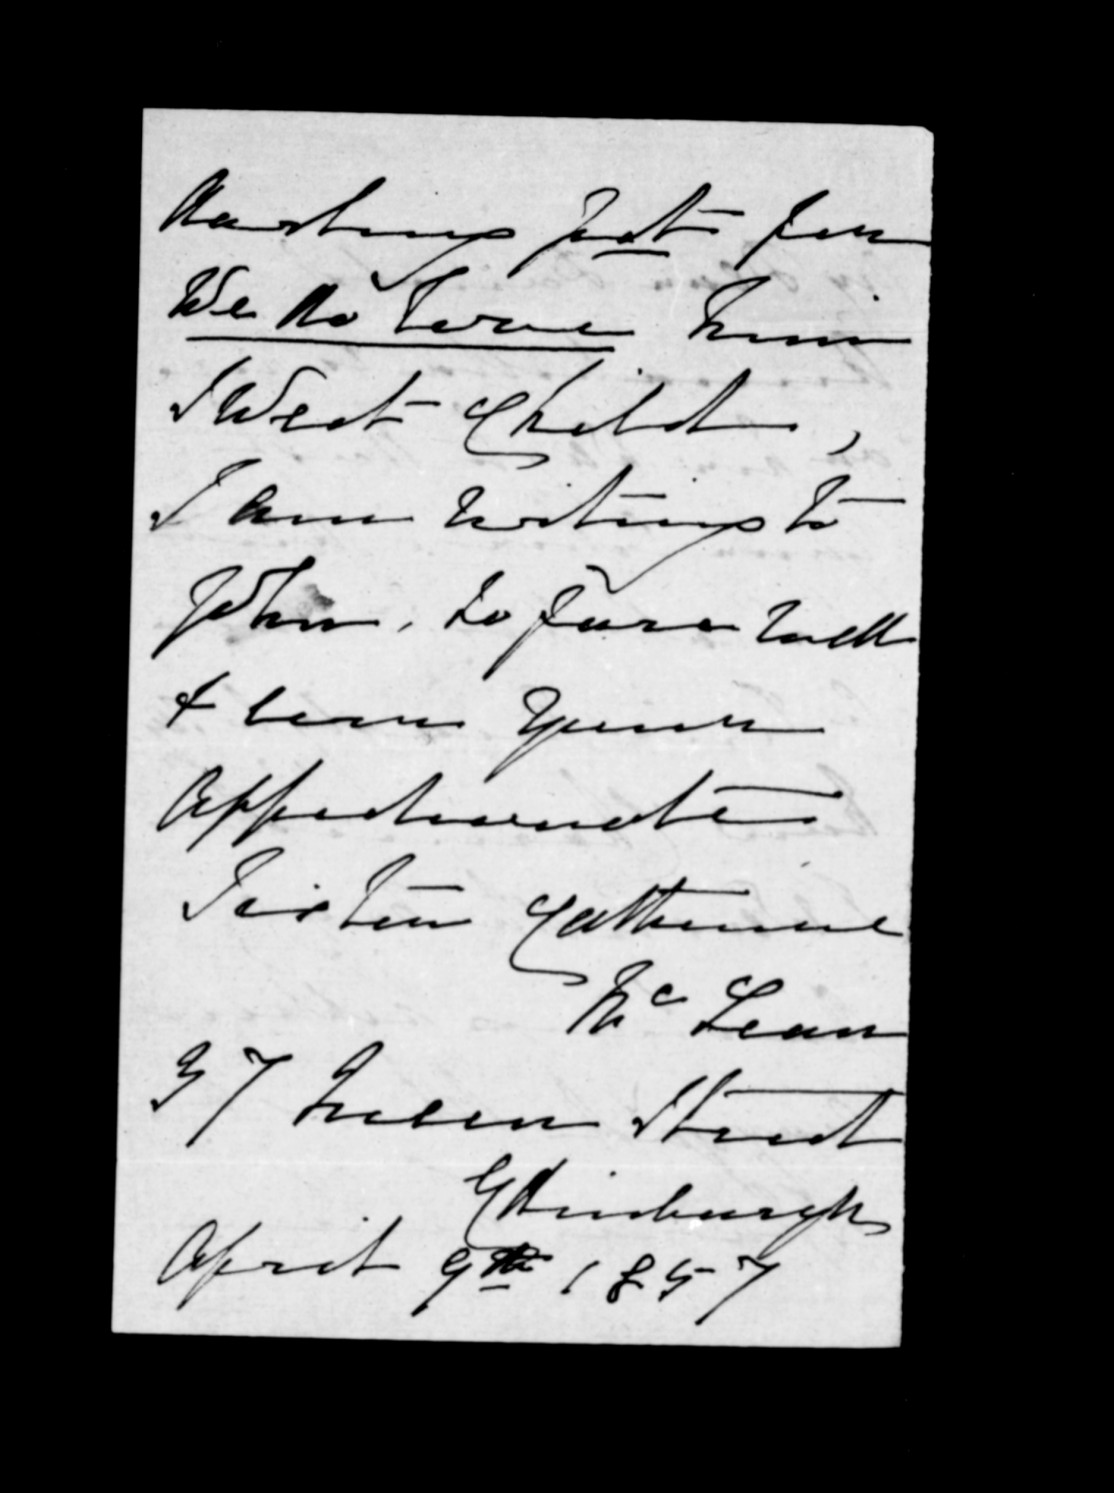 darling pet for
We do love him
Sweet Child,
I am writing to
John, so fare well
& leave Your
Affectionate
Sister Catherine
Mc Lean
37 Queen Street
Edinburgh
April 9th 1857